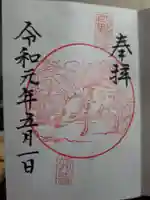 奉拝
令和元年五月一日